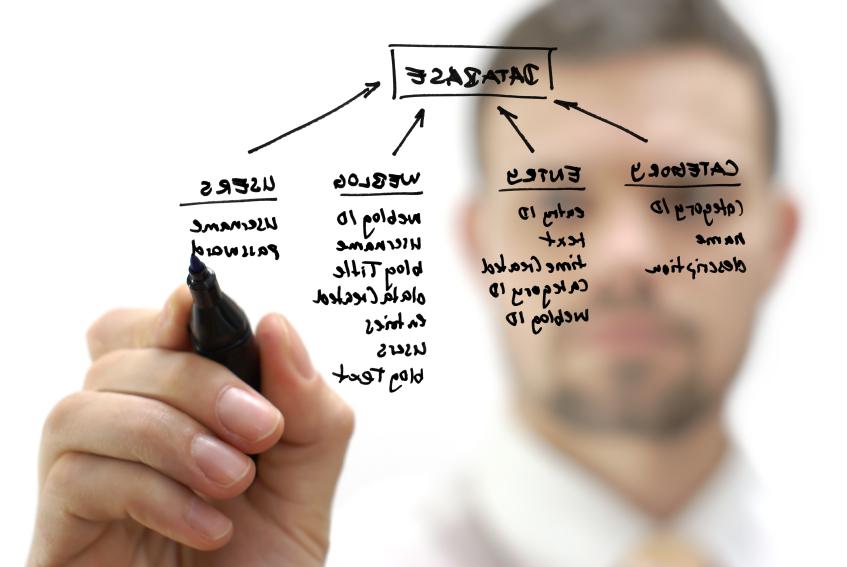 DATABASE
USERS
username
password
WEBLOG
weblog ID
username
blogTitle
dataCreated
entries
users
blogText
ENTRY
entry ID
text
timeCreated
Category ID
weblog ID
CATEGORY
Category ID
name
description